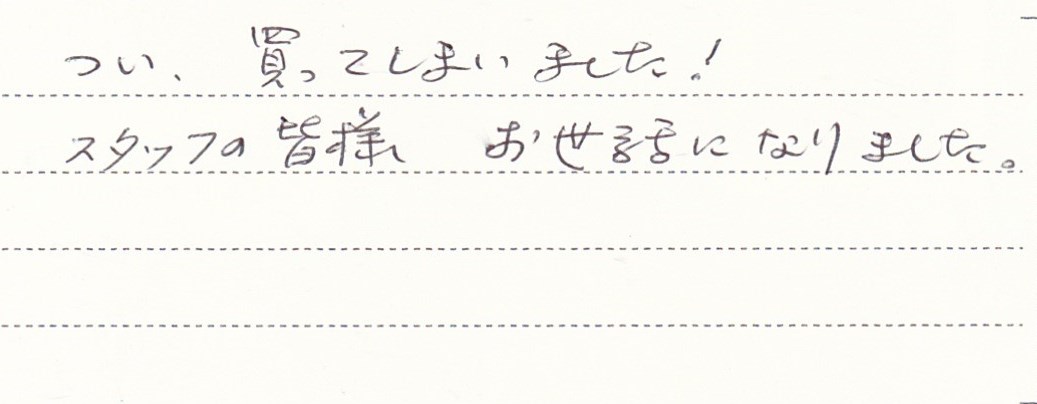 つい、買ってしまいました!
スタッフの皆様 お世話になりました。